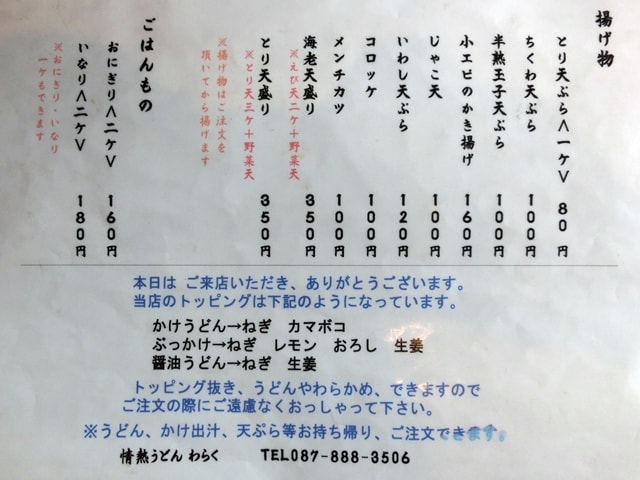 揚げ物
とり天ぷら<一ケ> 80円
ちくわ天ぷら 100円
半熟玉子天ぷら 100円
小エビのかき揚げ 160円
じゃこ天 100円
いわし天ぷら 120円
コロッケ 100円
メンチカツ 100円
海老天盛り 350円
※えび天二ケ+野菜天
とり天盛り 350円
※とり天三ケ+野菜天
※揚げ物はご注文を
頂いてから揚げます
ごはんもの
おにぎり<二ケ> 160円
いなり<二ケ> 180円
※おにぎり・いなり
一ケもできます
本日は ご来店いただき、ありがとうございます。
当店のトッピングは下記のようになっています。
かけうどん→ねぎ カマボコ
ぶっかけ→ねぎ レモン おろし 生姜
醤油うどん→ねぎ 生姜
トッピング抜き、うどんやわらかめ、できますので
ご注文の際にご遠慮なくおっしゃって下さい。
※うどん、かけ出汁、天ぷら等お持ち帰り、ご注文できます。
情熱うどん わらく TEL087-888-3506